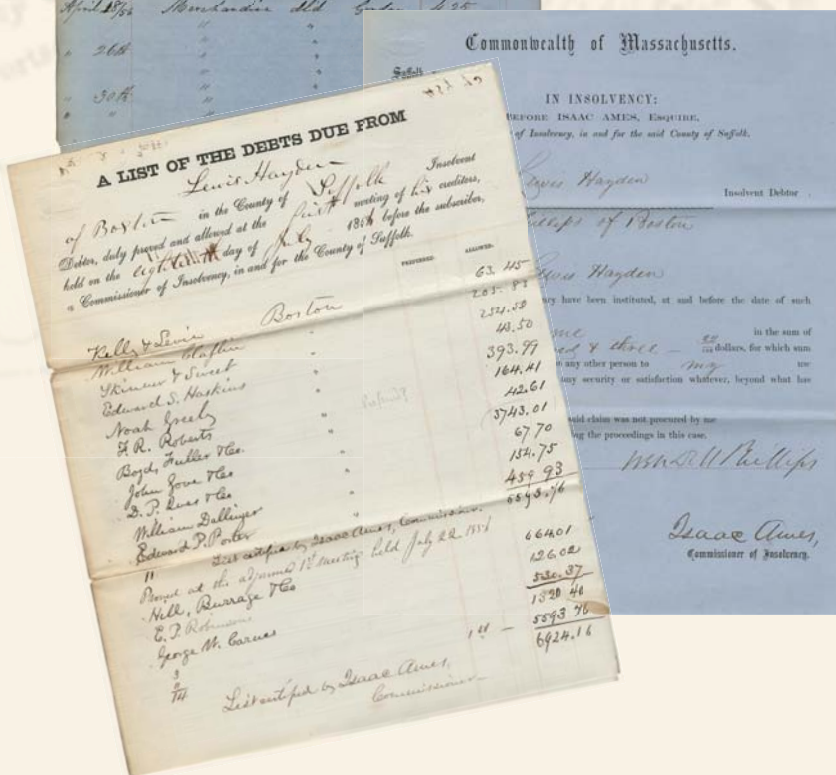 April 28/56 Merchandise dld 4 25
" 26th "
" 30th "
Commonwealth of Massachusetts.
Suffolk
IN INSOLVENCY:
BEFORE ISAAC AMES, ESQUIRE,
of Insolvency, in and for the said County of Suffolk.
Lewis Hayden
Insolvent Debtor
Phillips of Boston
Lewis Hayden
have been instituted, at and before the date of such
in the sum of
& three dollars, for which sum
any other person to my use
any security or satisfaction whatever, beyond what has
said claim was not procured by me
the proceedings in this case.
Wendell Phillips
Isaac Ames,
Commissioner of Insolvency.
A LIST OF THE DEBTS DUE FROM
Lewis Hayden
of Boston in the County of Suffolk Insolvent
Debtor, duly proved and allowed at the first meeting of his creditors,
held on the day of July 185 before the subscriber,
a Commissioner of Insolvency, in and for the County of Suffolk.
PREFERRED. ALLOWED.
Kelly & Levin Boston 63.45
William Claflin " 205.83
Skinner & Sweet "
Edward S. Haskins " 43.50
Noah Greely " 393.99
F. R. Roberts " 164.41
Boyd, Fuller & Co. " 42.61
John Gove & Co " 3743.01
D. P. & Co " 67.70
William Dallinger " 154.75
Edward P. Porter " 459.93
11 5593.76
List certified by Isaac Ames, Commissioner.
Proved at the adjourned 1st meeting held July 22 185
Hill, Burrage & Co 664.01
E. P. Robinson 126.02
George W. Carnes 530.37
3 1320 40
5593 76
6924.16
List certified by Isaac Ames,
Commissioner